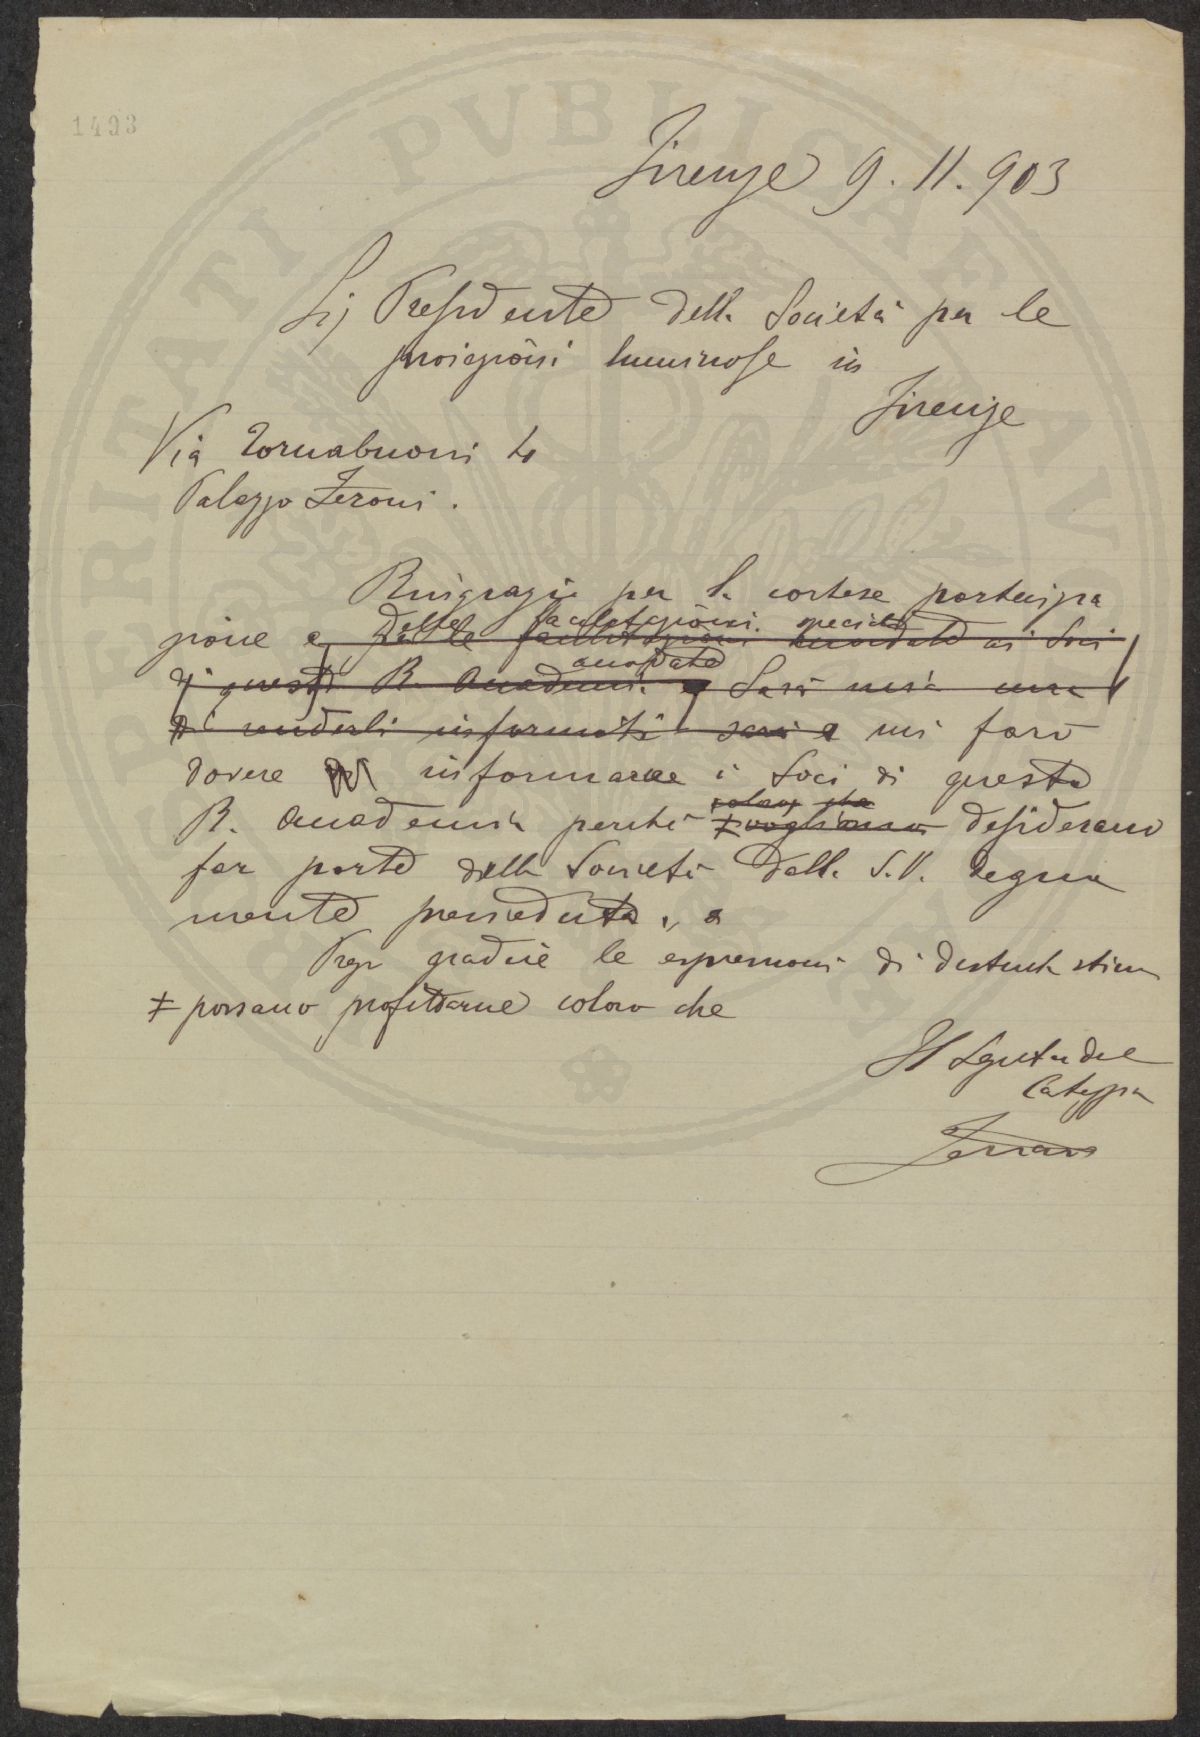 1493
Firenze 9. 11. 903
Sig Presidente della Società per le
proiezioni luminose in
Firenze
Via Tornabuoni 4
Palazzo Feroni.
Ringrazio per la cortese partecipa
zione e delle facilitazioni speciali
dalle facilitazioni accordate ai Soci
accordate
di questa R. Accademia e Sarà mia cura
di renderli informati sarà e mi farò
dovere informare i Soci di questa
coloro che
R. Accademia perché ≠ vogliano desiderano
far parte della Società dalla S.V. degna
mente presieduta.
Prego gradire le espressioni di distinta stima
≠ possano profittarne coloro che
Il Segretario del